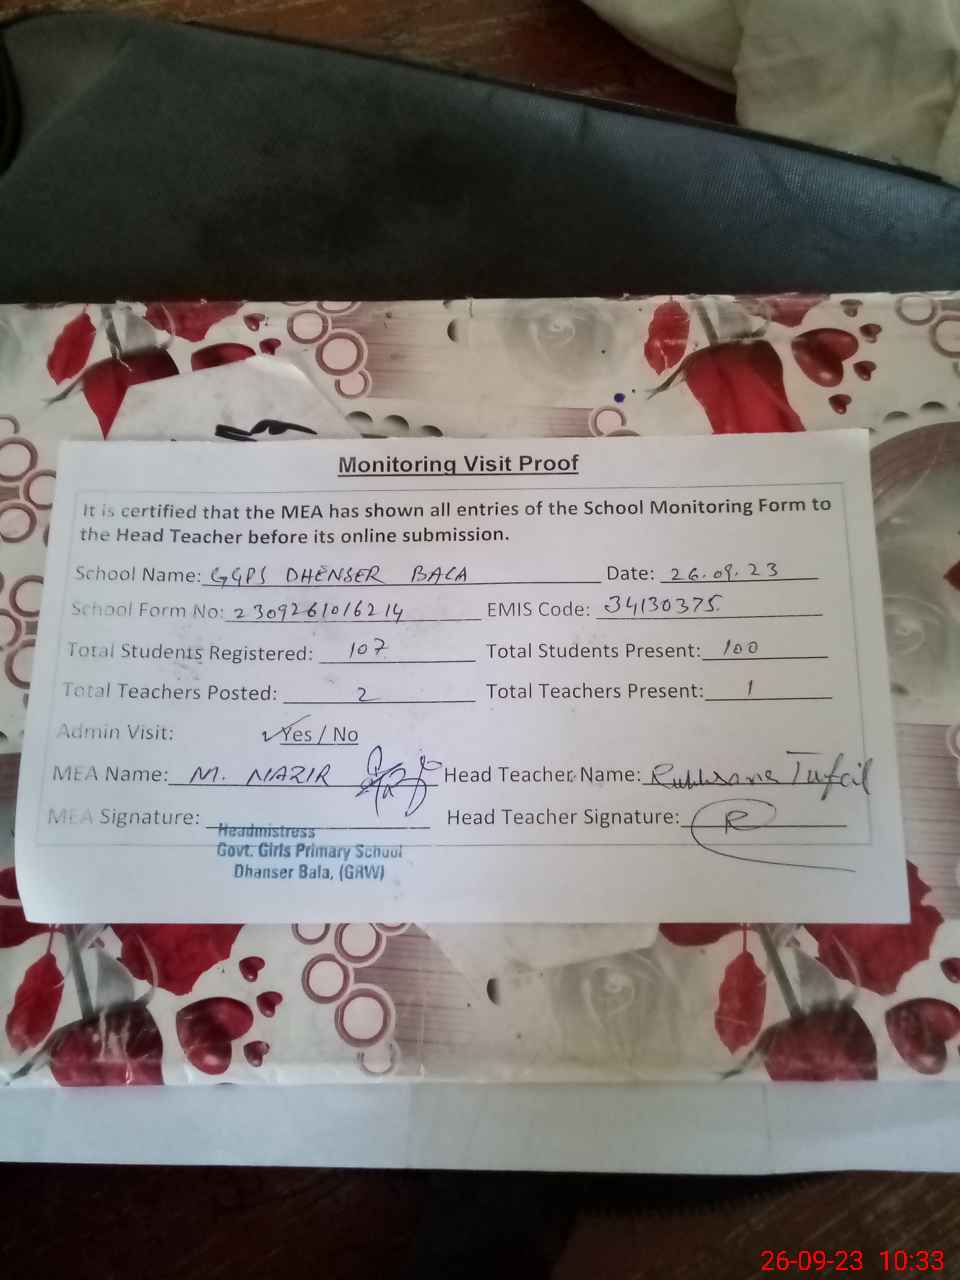 Monitoring Visit Proof
It is certified that the MEA has shown all entries of the School Monitoring Form to
the Head Teacher before its online submission.
School Name: GGPS DHENSER BALA Date: 26.09.23
School Form No: 2309261016214 EMIS Code: 34130375
Total Students Registered: 107 Total Students Present: 100
Total Teachers Posted: 2 Total Teachers Present: 1
Admin Visit: Yes / No
MEA Name: M. NAZIR Head Teacher Name: Rukhsana Tufail
MEA Signature: Head Teacher Signature: R
Headmistress
Govt. Girls Primary School
Dhanser Bala, (GRW)
26-09-23 10:33